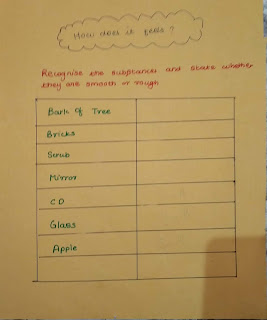 How does it feels ?
Recognise the substances and state whether
they are smooth or rough
Bark Of Tree
Bricks
Scrub
Mirror
CD
Glass
Apple